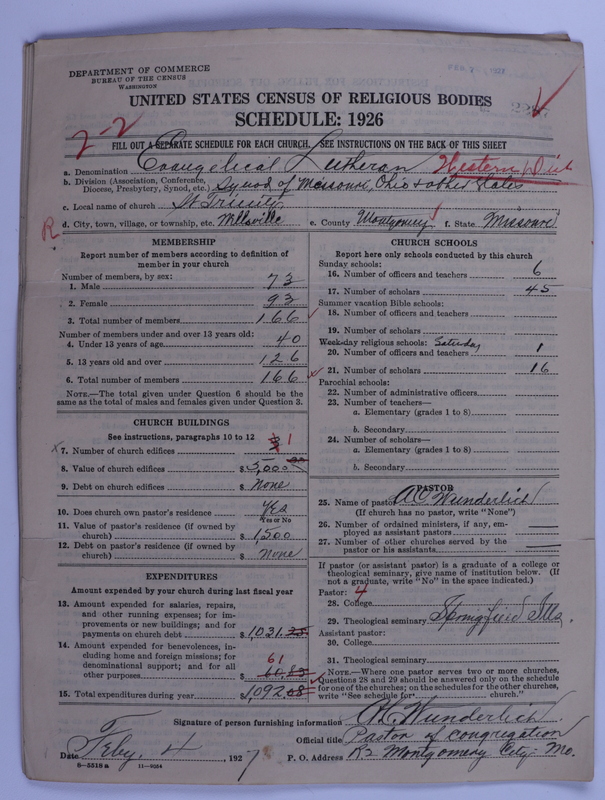 DEPARTMENT OF COMMERCE
BUREAU OF THE CENSUS
WASHINGTON
UNITED STATES CENSUS OF RELIGIOUS BODIES
SCHEDULE: 1926
2-2
FILL OUT A SEPARATE SCHEDULE FOR EACH CHURCH. SEE INSTRUCTIONS ON THE BACK OF THIS SHEET
a. Denomination Evangelical Lutheran Western Dist
b. Division (Association, Conference, Diocese, Presbytery, Synod, etc.) Synod of Missouri, Ohio & other States
c. Local name of church St Trinity
R d. City, town, village, or township, etc. Wellsville e. County Montgomery f. State Missouri
MEMBERSHIP
Report number of members according to definition of
member in your church
Number of members, by sex:
1. Male 73
2. Female 93
3. Total number of members 166
Number of members under and over 13 years old:
4. Under 13 years of age 40
5. 13 years old and over 126
6. Total number of members 166
NOTE.—The total given under Question 6 should be
same as the total of males and females given under Question 3.
CHURCH BUILDINGS
See instructions, paragraphs 10 to 12
7. Number of church edifices 1
8. Value of church edifices $5,000
9. Debt on church edifices $ None
10. Does church own pastor's residence? Yes
Yes or No
11. Value of pastor's residence (if owned by
church) $1,500
12. Debt on pastor's residence (if owned by
church) $ None
EXPENDITURES
Amount expended by your church during last fiscal year
13. Amount expended for salaries, repairs,
and other running expenses; for im-
provements or new buildings; and for
payments on church debt $1,031.25
14. Amount expended for benevolences, in-
cluding home and foreign missions; for
denominational support; and for all
61
other purposes 60.83
15. Total expenditures during year $1,092.08
CHURCH SCHOOLS
Report here only schools conducted by this church
Sunday schools:
16. Number of officers and teachers 6
17. Number of scholars 45
Summer vacation Bible schools:
18. Number of officers and teachers
19. Number of scholars
Week-day religious schools: Saturday
20. Number of officers and teachers 1
21. Number of scholars 16
Parochial schools:
22. Number of administrative officers
23. Number of teachers—
a. Elementary (grades 1 to 8)
b. Secondary
24. Number of scholars—
a. Elementary (grades 1 to 8)
b. Secondary
PASTOR
25. Name of pastor A C Wunderlich
(If church has no pastor, write "None")
26. Number of ordained ministers, if any, em-
ployed as assistant pastors
27. Number of other churches served by the
pastor or his assistants
If pastor (or assistant pastor) is a graduate of a college or
theological seminary, give name of institution below. (If
not a graduate, write "No" in the space indicated.)
Pastor: 4
28. College
29. Theological seminary Springfield Ills.
Assistant pastor:
30. College
31. Theological seminary
NOTE.—Where one pastor serves two or more churches,
Questions 28 and 29 should be answered only on the schedule
for one of the churches; on the schedules for the other churches,
write "See schedule for church."
Signature of person furnishing information A.C. Wunderlich
Official title Pastor of Congregation
Date Feby. 4 1927 P. O. Address R2 Montgomery City Mo.
8—5518a 11—9054